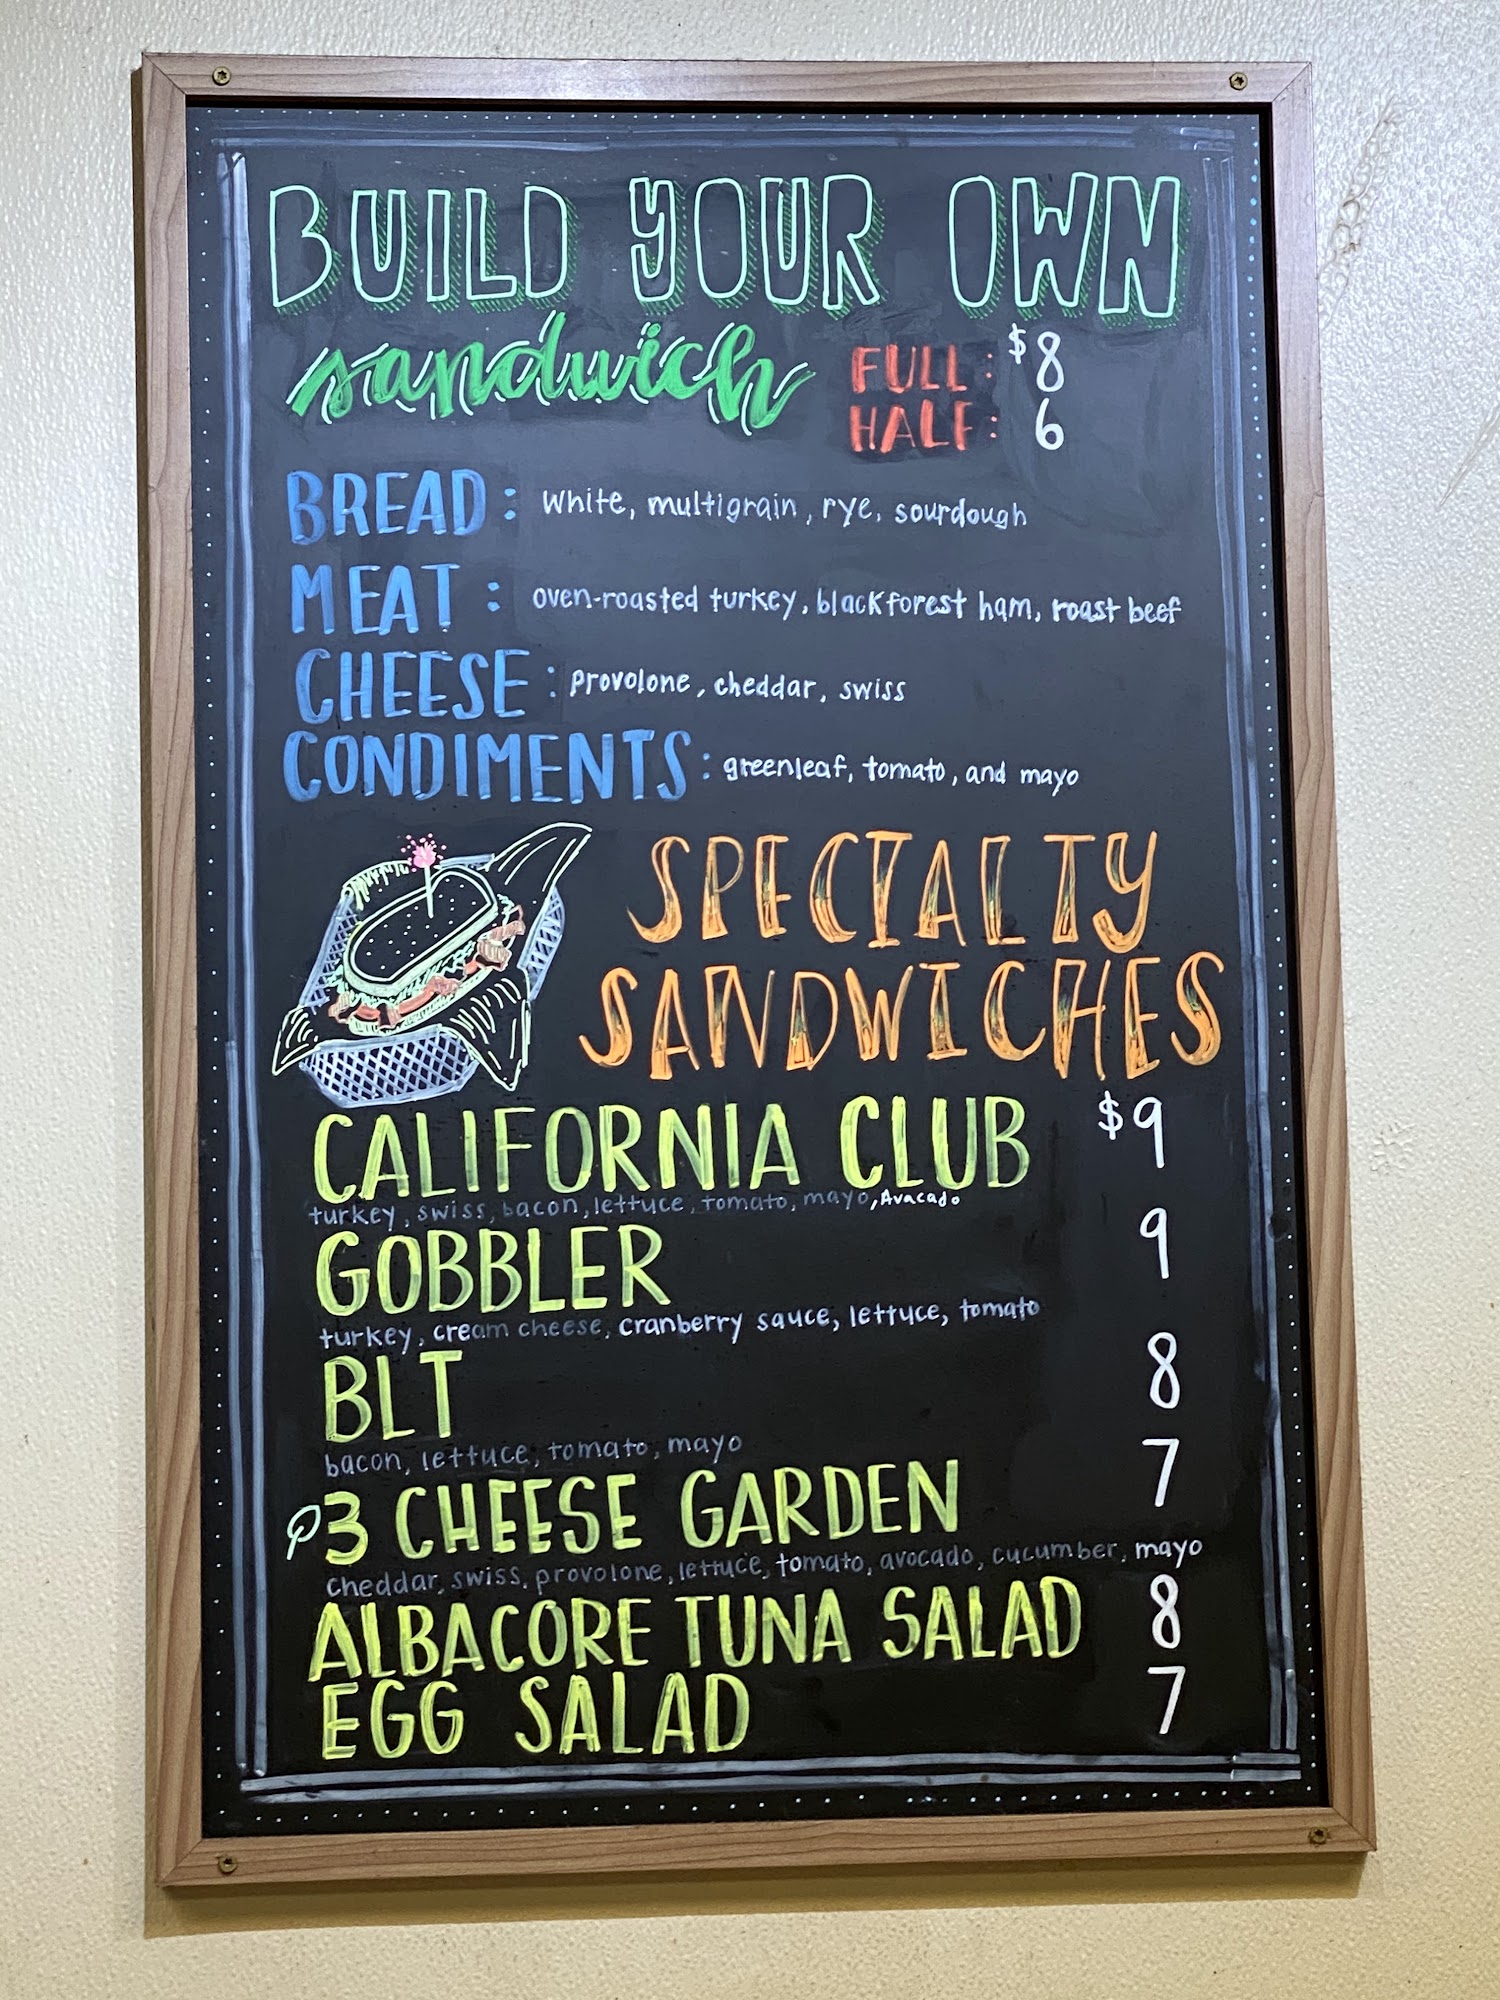 BUILD YOUR OWN
sandwich FULL: $8
HALF: 6
BREAD: white, multigrain, rye, sourdough
MEAT: oven-roasted turkey, blackforest ham, roast beef
CHEESE: provolone, cheddar, swiss
CONDIMENTS: greenleaf, tomato, and mayo
SPECIALTY
SANDWICHES
CALIFORNIA CLUB $9
turkey, swiss, bacon, lettuce, tomato, mayo, Avacado
GOBBLER 9
turkey, cream cheese, cranberry sauce, lettuce, tomato
BLT 8
bacon, lettuce, tomato, mayo
3 CHEESE GARDEN 7
cheddar, swiss, provolone, lettuce, tomato, avocado, cucumber, mayo
ALBACORE TUNA SALAD 8
EGG SALAD 7